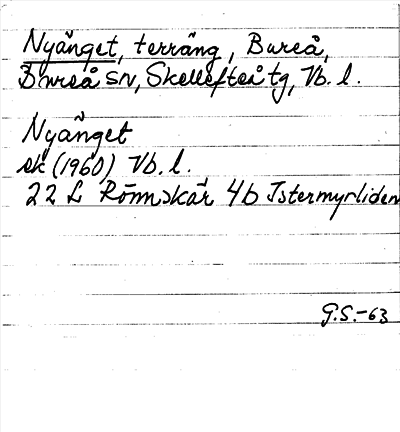 Nyänget, terräng, Bureå,
Bureå sn, Skellefteå tg, Vb. l.
Nyänget
ek (1960) Vb. l.
22 L Rönnskär 4b Istermyrliden
G.S.-63